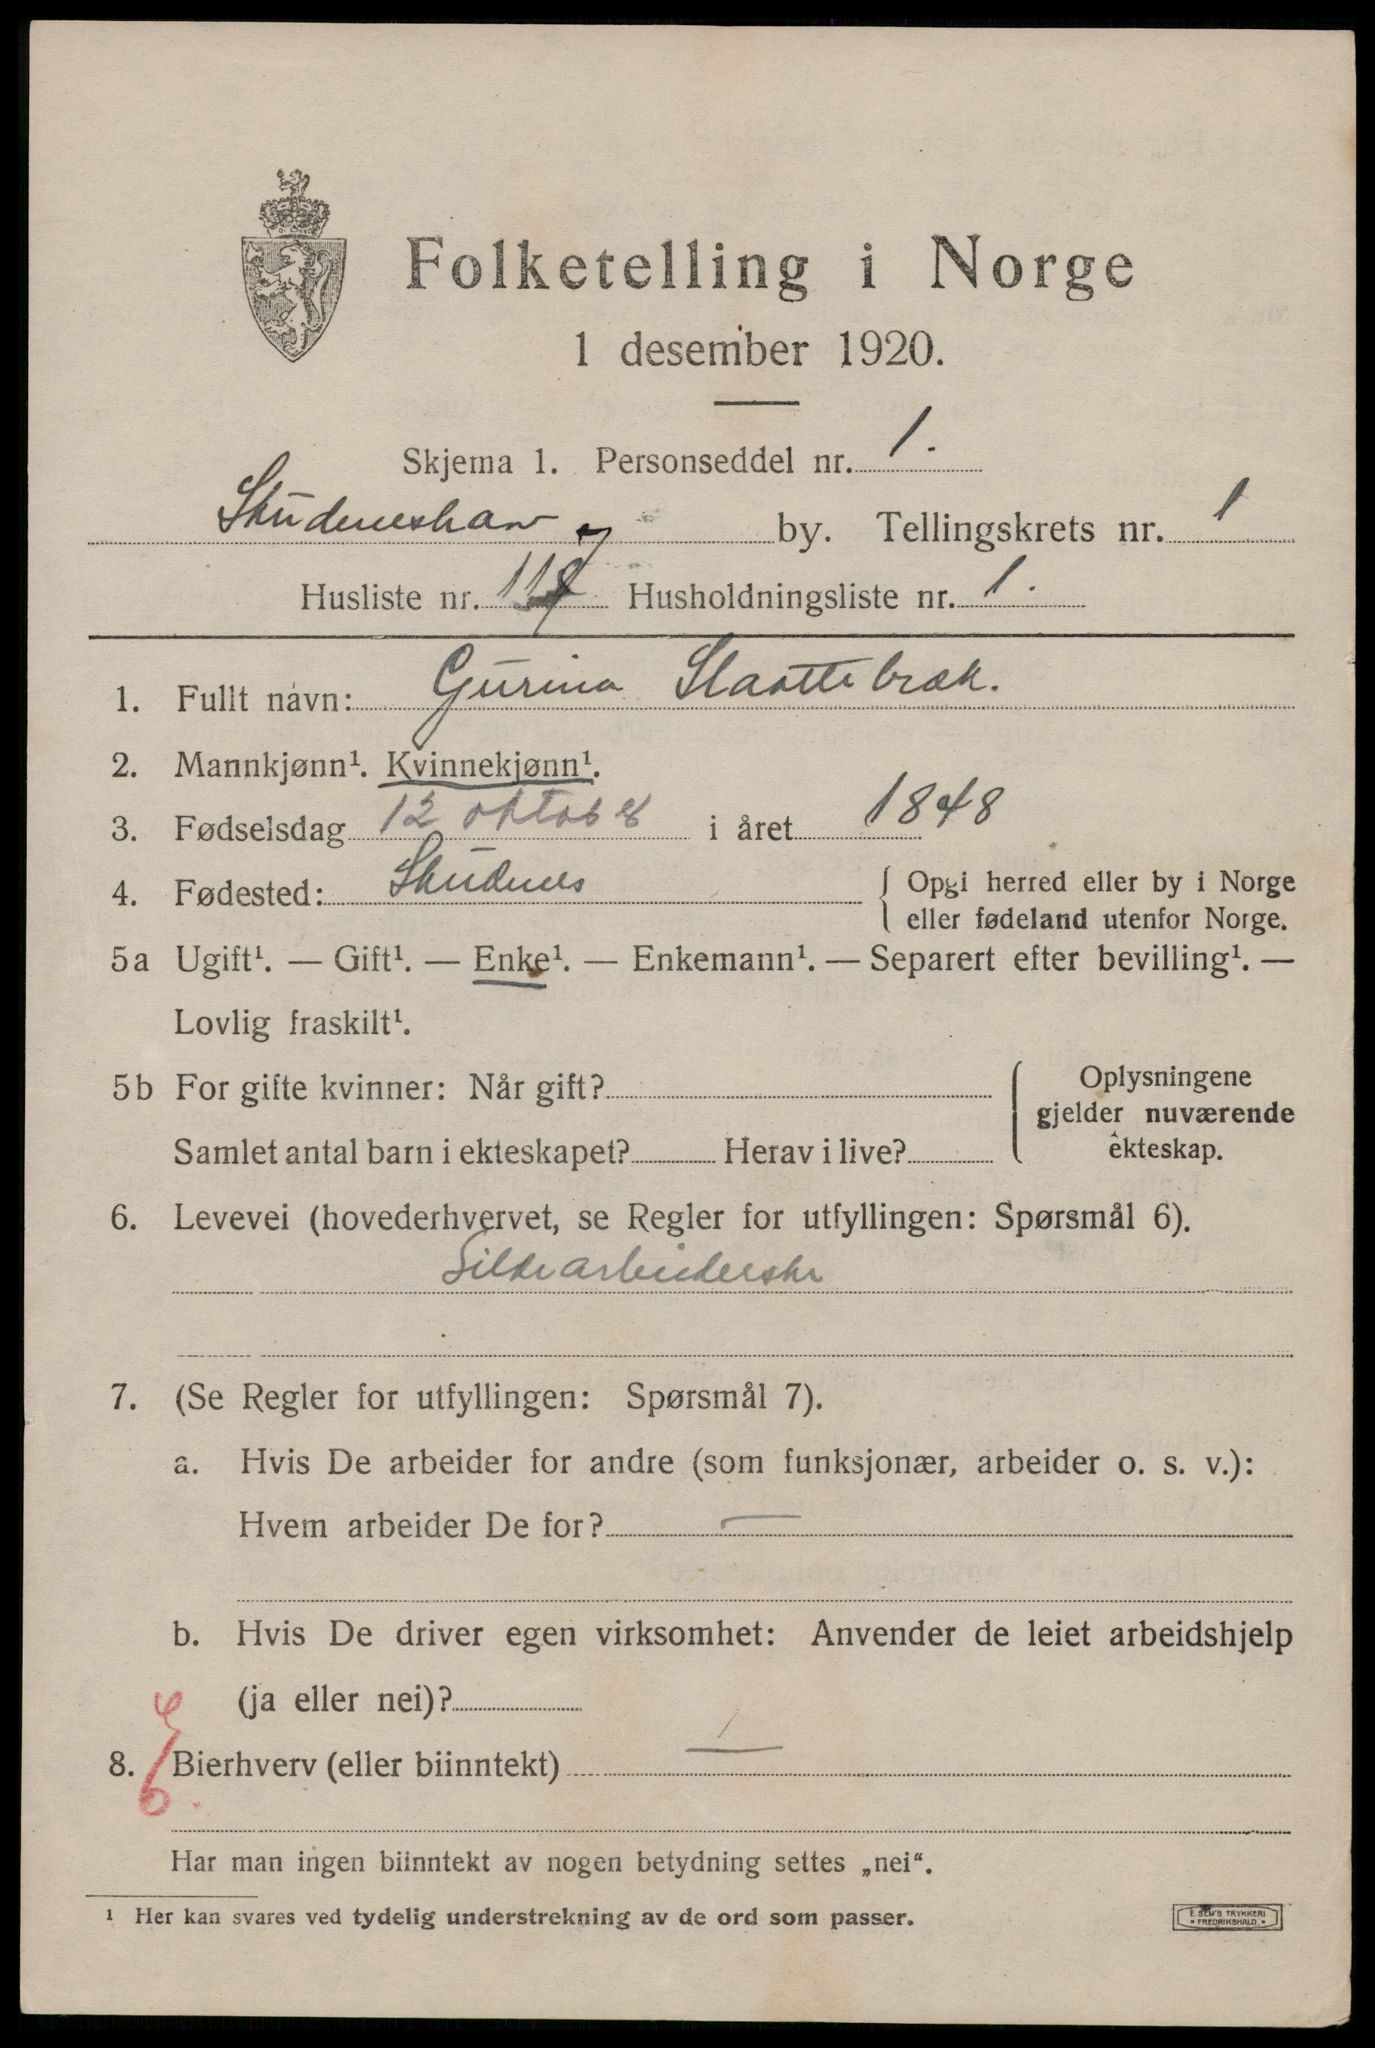 Folketelling i Norge
1 desember 1920.
Skjema 1. Personseddel nr. 1.
Skudeneshavn by. Tellingskrets nr. 1
Husliste nr. 117 Husholdningsliste nr. 1.
1. Fullt navn: Gurina Slaattebræk.
2. Mannkjønn¹. Kvinnekjønn¹.
3. Fødselsdag 12 oktober i året 1848
4. Fødested: Skudenes { Opgi herred eller by i Norge
eller fødeland utenfor Norge.
5a Ugift¹. — Gift¹. — Enke¹. — Enkemann¹. — Separert efter bevilling¹. —
Lovlig fraskilt¹.
5b For gifte kvinner: Når gift? { Oplysningene
gjelder nuværende
Samlet antal barn i ekteskapet? Herav i live? ekteskap.
6. Levevei (hovederhvervet, se Regler for utfyllingen: Spørsmål 6).
Sildearbeiderske
7. (Se Regler for utfyllingen: Spørsmål 7).
a. Hvis De arbeider for andre (som funksjonær, arbeider o. s. v.):
Hvem arbeider De for? —
b. Hvis De driver egen virksomhet: Anvender de leiet arbeidshjelp
(ja eller nei)?
8. Bierhverv (eller biinntekt) —
Har man ingen biinntekt av nogen betydning settes „nei“.
¹ Her kan svares ved tydelig understrekning av de ord som passer.
E. SEM'S TRYKKERI
• FREDRIKSHALD •